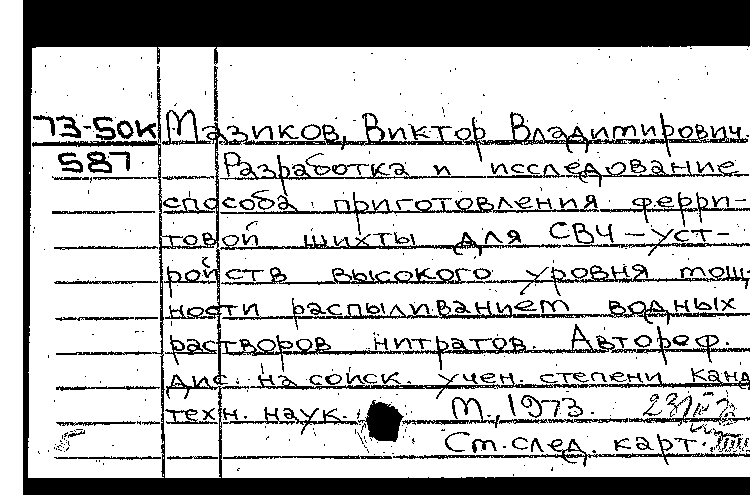 73-50к Мазиков, Виктор Владимирович.
587 Разработка и исследование
способа приготовления ферри-
товой шихты для СВЧ-уст-
ройств высокого уровня мощ-
ности распыливанием водных
растворов нитратов. Автореф.
дис. на соиск. учен. степени канд
техн. наук. М., 1973.
См. след. карт.